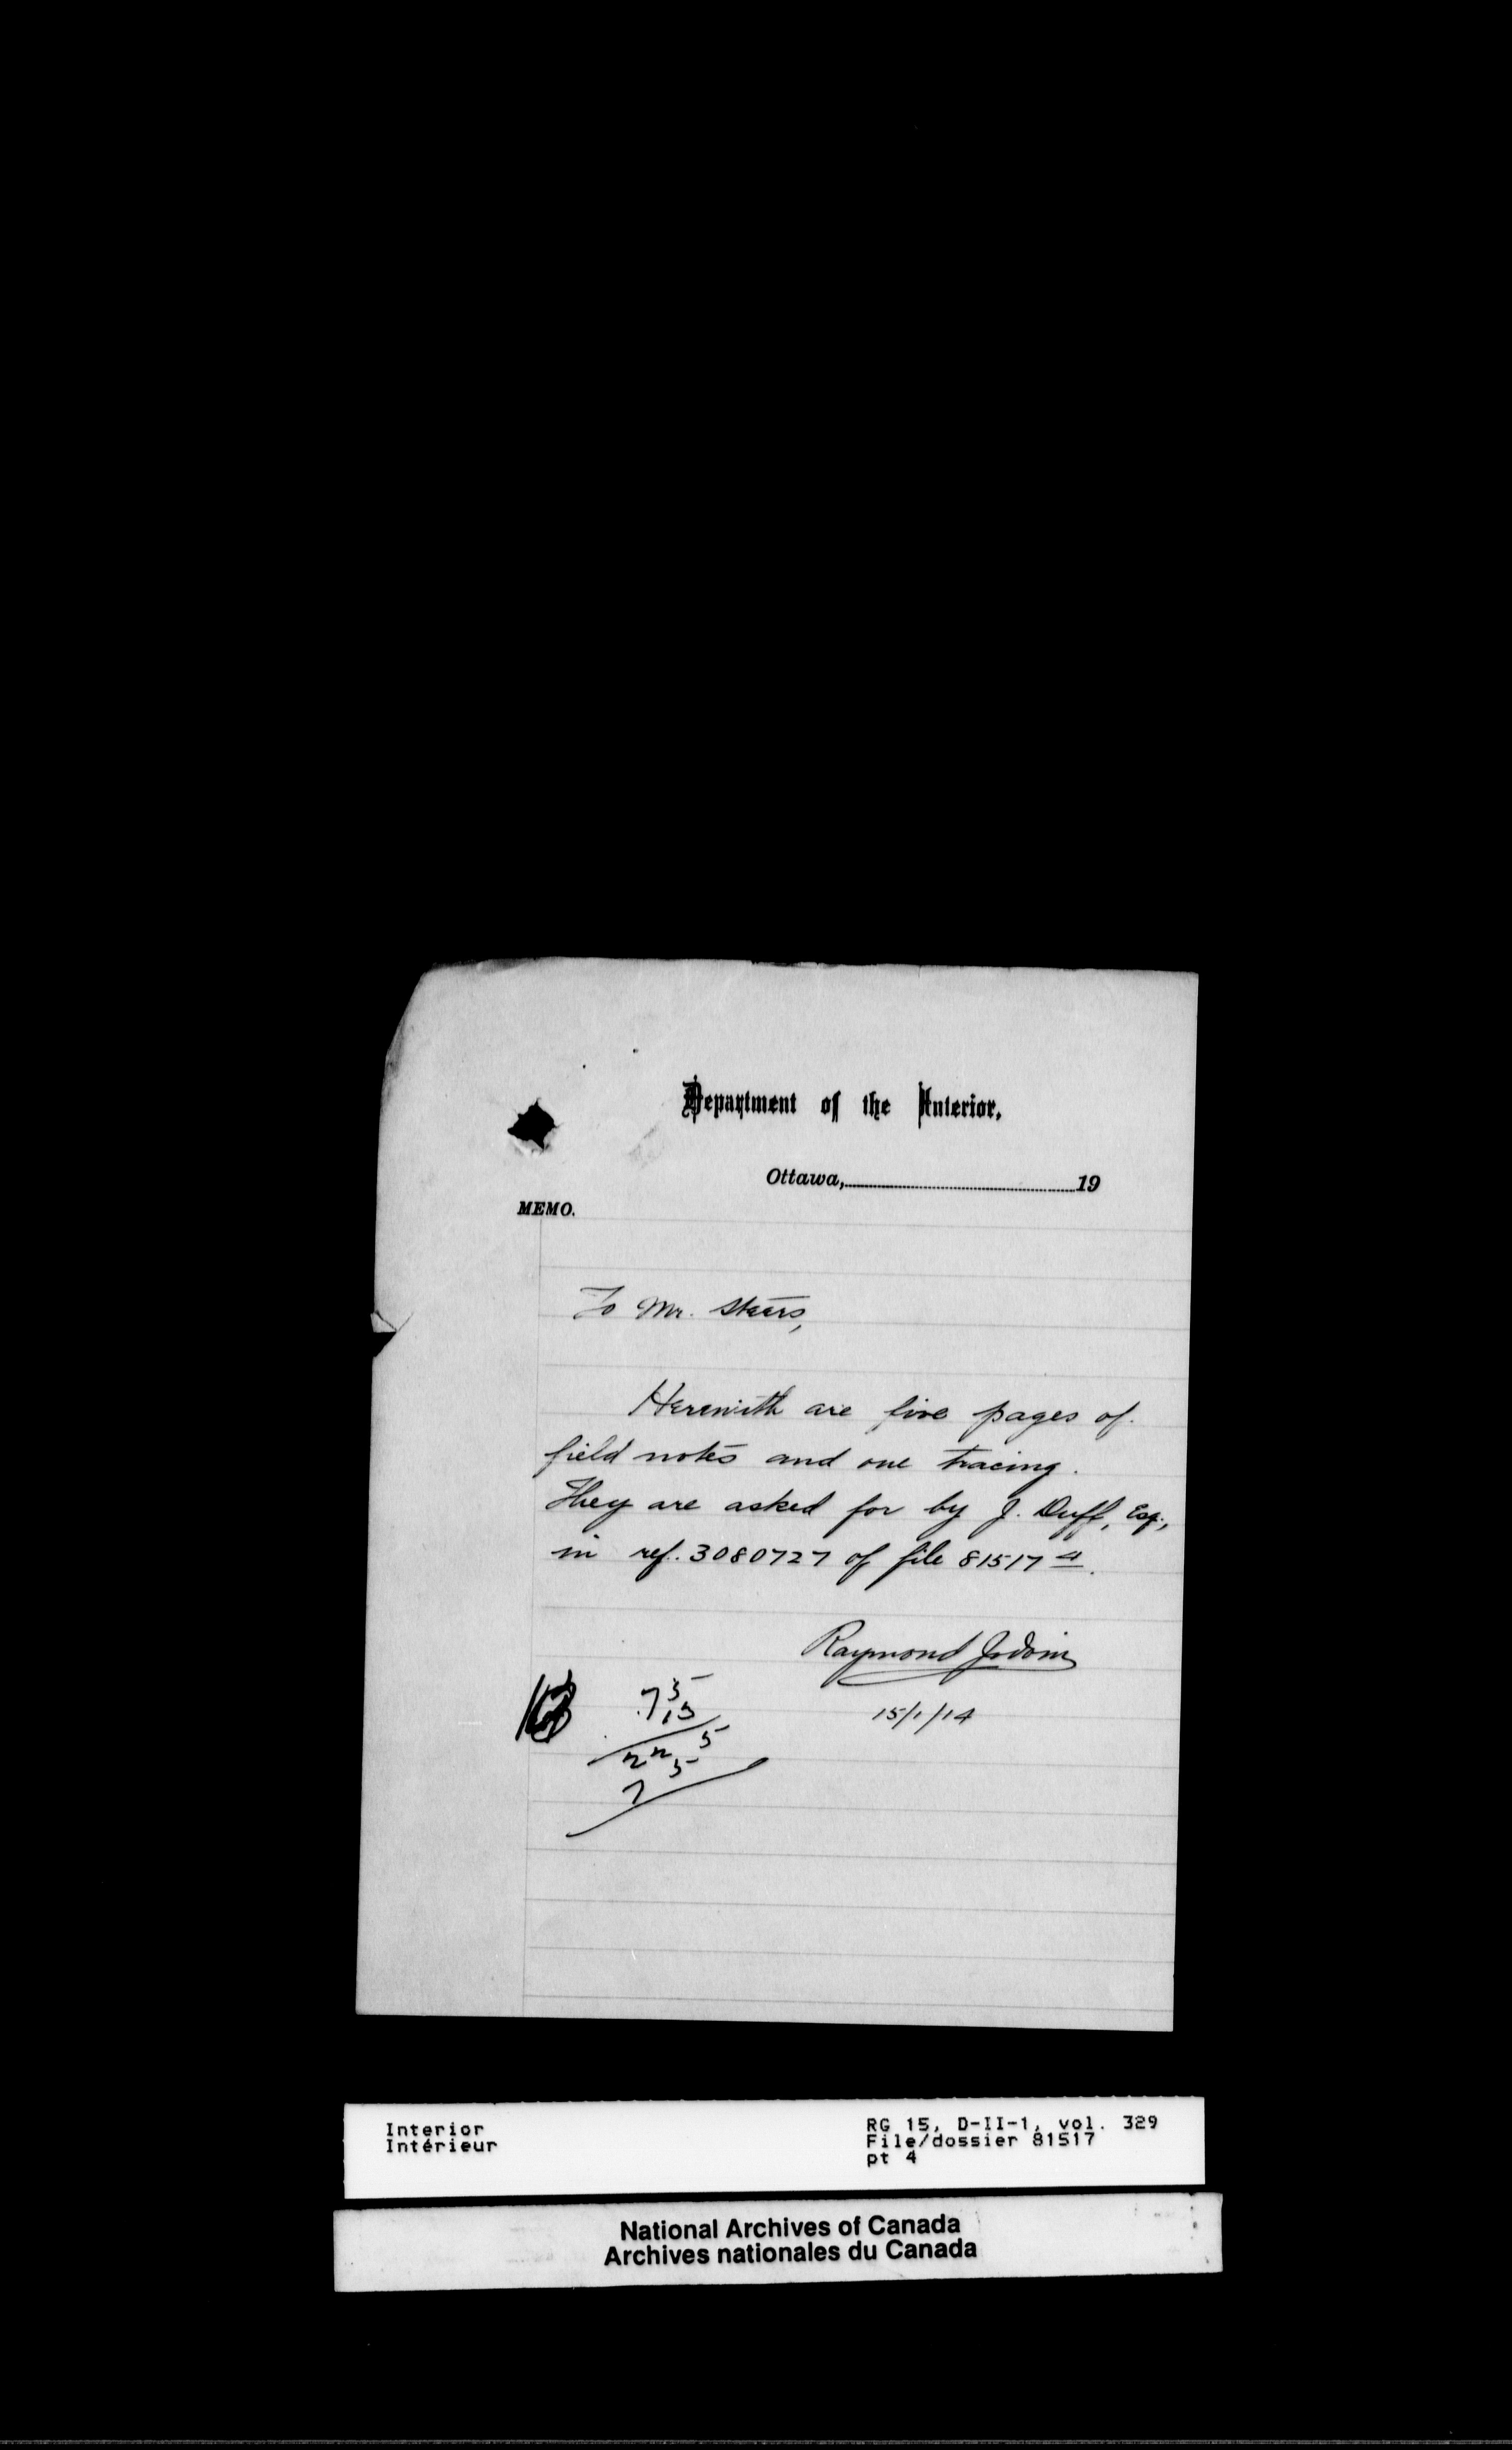 Department of the Interior.
Ottawa, 19
MEMO.
To Mr. Steers,
Herewith are five pages of
field notes and one tracing.
They are asked for by J. Duff, Esq.,
in ref. 3080727 of file 81517
Raymond Jodoin
15/1/14
75
15
Interior
Intérieur
RG 15, D-II-1, vol. 329
File/dossier 81517
pt 4
National Archives of Canada
Archives nationales du Canada